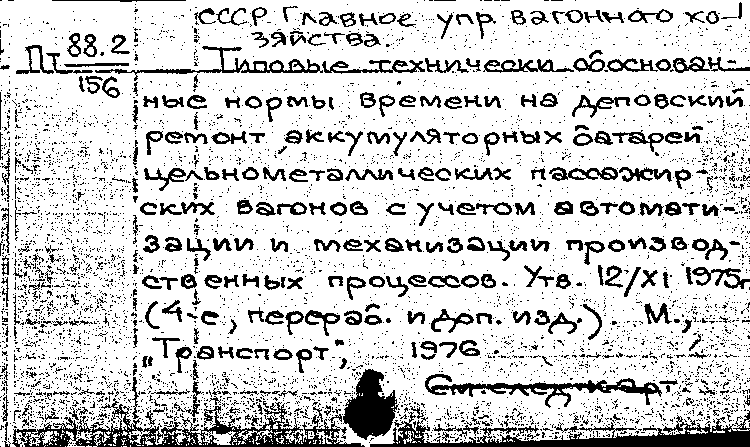 СССР. Главное упр. вагонного хо-
зяйства.
Пт 88.2
156
Типовые технически обоснован-
ные нормы времени на деповский
ремонт аккумуляторных батарей
цельнометаллических пассажир-
ских вагонов с учетом автомати-
зации и механизации производ-
ственных процессов. Утв. 12/XI 1975г.
(4-е, перераб. и доп. изд.). М.,
„Транспорт", 1976.
См. след. карт.